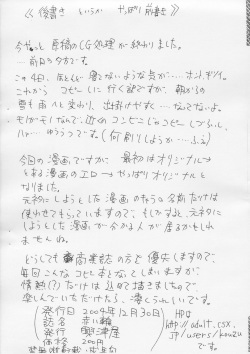 ≪後書き というか やっぱり前書き≫
今やっと 原稿のCG処理が終わりました。
…前日の夕方です。
この4日、ほとんど寝てないような気が…。ホント、ギリギリ。
これから コピーしに行く訳ですが、朝からの
雪も雨へと変わり、出掛けやすく…なってないよ。
もしかもしなくて、近くのコンビニじゃコピーしづらいし、
ハァ… ゆううつです。(何刷りしようか…ふえ)
今回の漫画ですが、 最初はオリジナル→
とある漫画のエロ→やっぱりオリジナルと
なりました。
元ネタにしようとした漫画のキャラの名前だけは
使わせてもらっていますので、もしかすると、元ネタに
しようとした漫画が分かる人が居るかもしれ
ませんね。
どうしても 商業誌の方を優先しますので、
毎回こんなコピー本となってしまいますが、
情熱(?)だけは込めて描きましたので、
楽しんでいただけたら、凄くうれしいです。
発行日 2009年12月30日
誌名 赤い輪
発行 興津屋
価格 200円
HPは
http://adult.csx.
jp/users/kouzu
です。